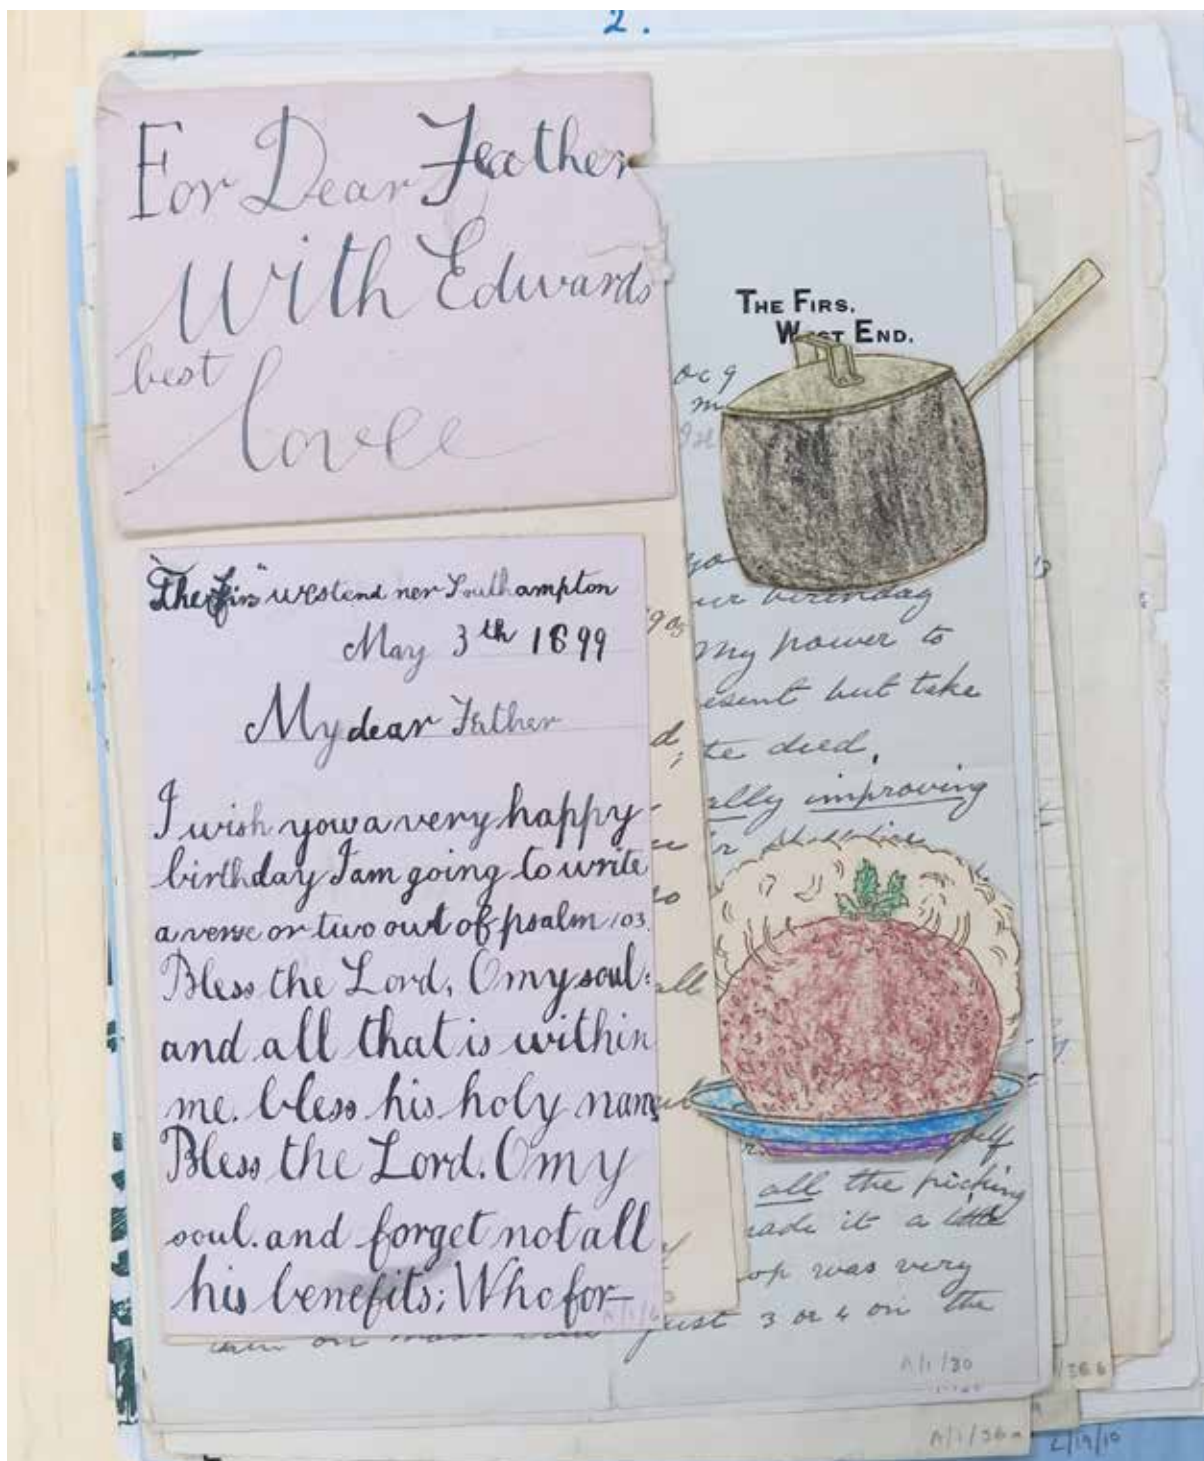 2.
For Dear Feather
With Edwards
best
lovee
"The Firs" westend ner Southampton
May 3th 1899
My dear Father
I wish yow a very happy
birthday I am going to write
a verse or two out of psalm 103.
Bless the Lord, O my soul:
and all that is within
me. bless his holy name
Bless the Lord. O my
soul. and forget not all
his benefits; Who for-
THE FIRS.
WEST END.
birthday
My power to
but take
deed.
improving
all
all the picking
it a little
was very
just 3 or 4 on the
A/1/30
A/1/36a
L/19/10